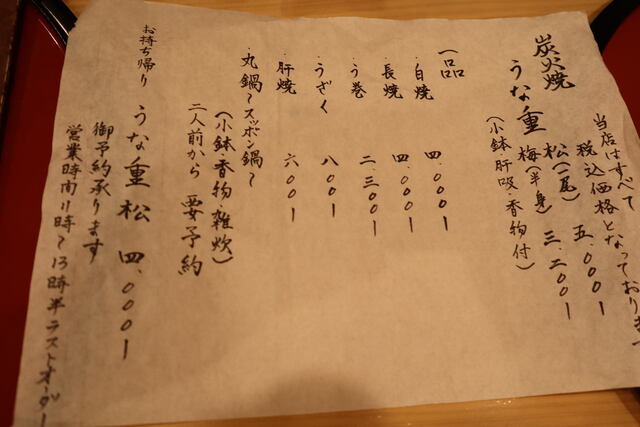 当店はすべて
税込価格となっております
炭火焼
うな重 松(一尾) 五.〇〇〇ー
梅(半身) 三.二〇〇ー
(小鉢肝吸・香物付)
一品
・白焼 四.〇〇〇ー
・長焼 四.〇〇〇ー
・う巻 二.三〇〇ー
・うざく 八〇〇ー
・肝焼 六〇〇ー
・丸鍋〜スッポン鍋〜
(小鉢香物・雑炊)
二人前から 要予約
お持ち帰り うな重 松 四.〇〇〇ー
御予約承ります
営業時間11時〜13時半ラストオーダー